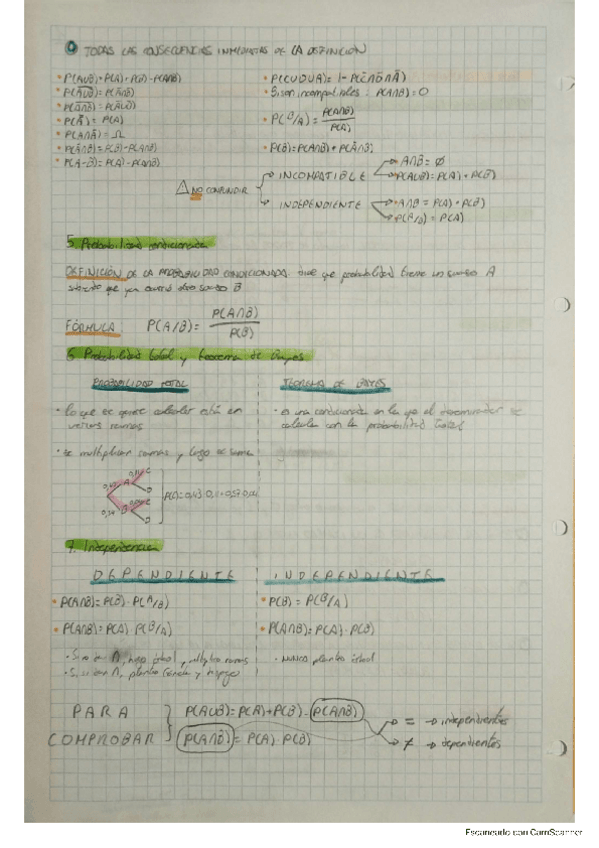 TODAS LAS CONSECUENCIAS INMEDIATAS DE LA DEFINICIÓN
• P(A∪B)=P(A)+P(B)-P(A∩B)
• P(A̅∪̅B̅)=P(A̅∩B̅)
• P(A̅∩̅B̅)=P(A̅∪B̅)
• P(A∩B̅)=P(A)-P(A∩B)
• P(C∪D∪A)= 1-P(C̅∩D̅∩A̅)
• Si son incompatibles: P(A∩B)=0
• P(B/A)= P(A∩B)/P(A)
• P(B)=P(A∩B)+P(A̅∩B)
NO CONFUNDIR
INCOMPATIBLE
A∩B=∅
P(A∪B)=P(A)+P(B)
INDEPENDIENTE
A∩B=P(A)·P(B)
P(A/B)=P(A)
5. Probabilidad condicionada
DEFINICIÓN DE LA PROBABILIDAD CONDICIONADA: dice que probabilidad tiene un suceso A
sabiendo que ya ocurrió otro suceso B
FÓRMULA P(A/B)= P(A∩B)/P(B)
6. Probabilidad total y teorema de Bayes
PROBABILIDAD TOTAL
• lo que se quiere calcular está en
varias ramas
• se multiplican ramas y luego se suma
A C
D
B C
D
TEOREMA DE BAYES
• es una condicionada en la que el denominador se
calcula con la probabilidad total
7. Independencia
DEPENDIENTE
• P(A∩B)=P(B)·P(A/B)
• P(A∩B)=P(A)·P(B/A)
INDEPENDIENTE
• P(B)=P(B/A)
• P(A∩B)=P(A)·P(B)
• NUNCA planteo árbol
PARA
COMPROBAR
P(A∪B)=P(A)+P(B)-P(A∩B)
P(A∩B)=P(A)·P(B)
= → independientes
≠ → dependientes
Escaneado con CamScanner